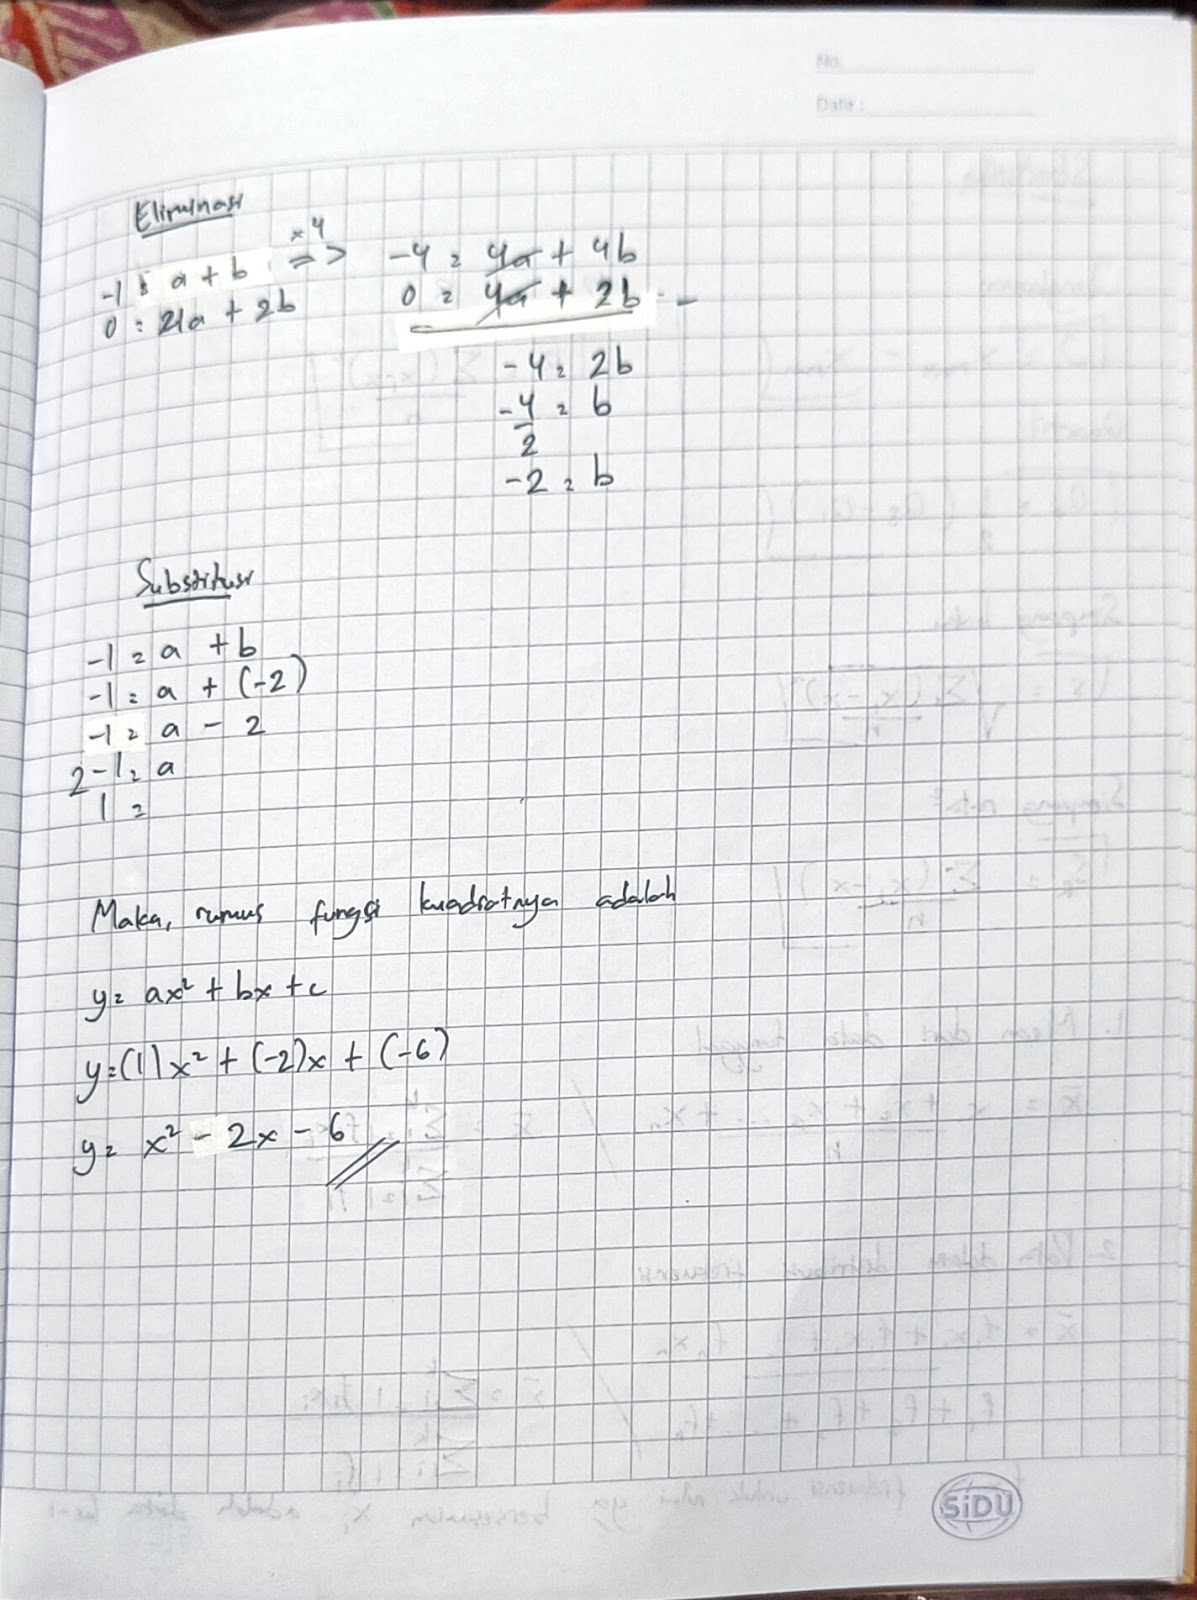 No.
Date :
Eliminasi
-1 = a + b ×4 => -4 = 4a + 4b
0 = 4a + 2b 0 = 4a + 2b -
-4 = 2b
-4/2 = b
-2 = b
Substitusi
-1 = a + b
-1 = a + (-2)
-1 = a - 2
2 - 1 = a
1 =
Maka, rumus fungsi kuadratnya adalah
y = ax² + bx + c
y = (1)x² + (-2)x + (-6)
y = x² - 2x - 6
SiDU